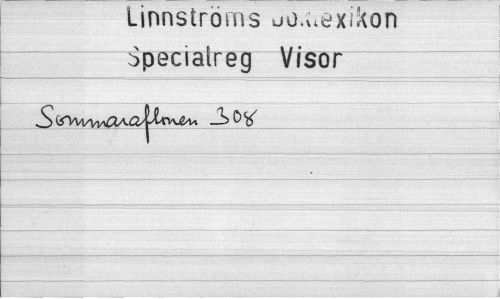 Linnströms Boklexikon
Specialreg Visor
Sommaraftonen 308